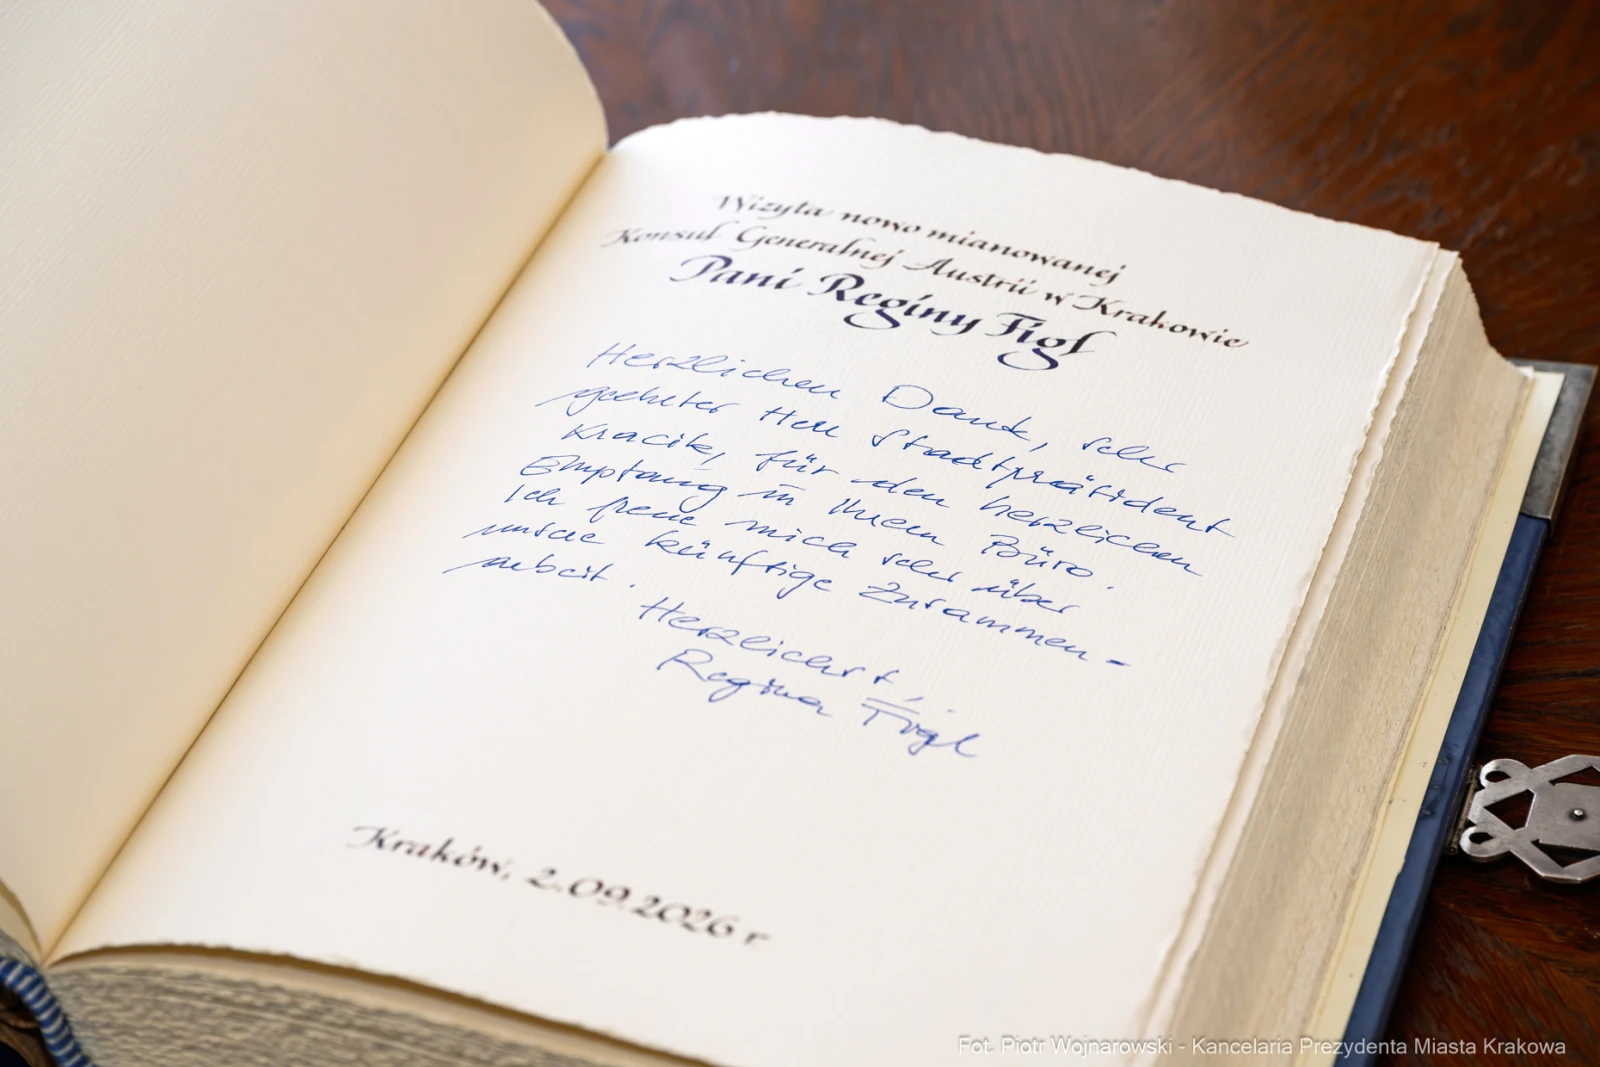 Wizyta nowo mianowanej
Konsul Generalnej Austrii w Krakowie
Pani Reginy Figl
Herzlichen Dank, sehr
geehrter Herr Stadtpräsident
Kracik, für den herzlichen
Empfang in Ihrem Büro.
Ich freue mich sehr über
unsere künftige Zusammen-
arbeit.
Herzlichst,
Regina Figl
Kraków, 2.09.2026 r
Fot. Piotr Wojnarowski - Kancelaria Prezydenta Miasta Krakowa